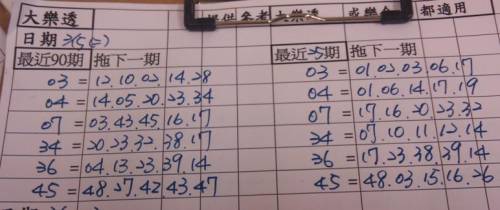 大樂透 提供參考大樂透 或樂合 都適用
日期
最近90期 拖下一期
03 = 12.10.02.14.28
04 = 14.05.20.23.34
07 = 03.43.45.16.17
34 = 20.23.32.38.17
36 = 04.13.23.39.14
45 = 48.27.42.43.47
最近25期 拖下一期
03 = 01.02.03.06.17
04 = 01.06.14.17.19
07 = 17.16.20.23.32
34 = 07.10.11.12.14
36 = 17.23.38.39.14
45 = 48.03.15.16.26